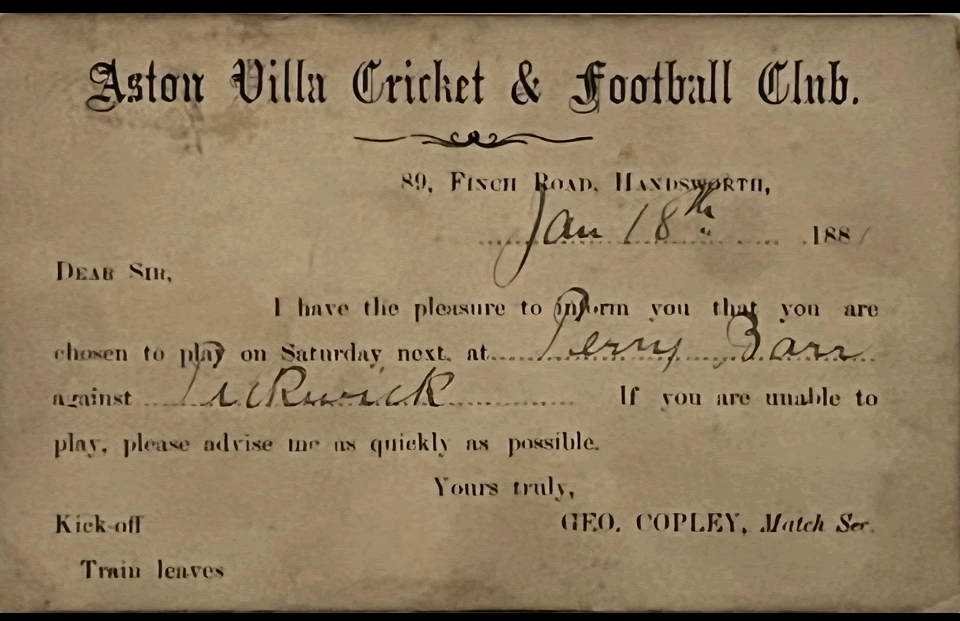 Aston Villa Cricket & Football Club.
89, Finch Road, Handsworth,
Jan 18th 188
Dear Sir,
I have the pleasure to inform you that you are
chosen to play on Saturday next, at Perry Barr
against Pickwick If you are unable to
play, please advise me as quickly as possible.
Yours truly,
Kick-off GEO. COPLEY, Match Sec.
Train leaves